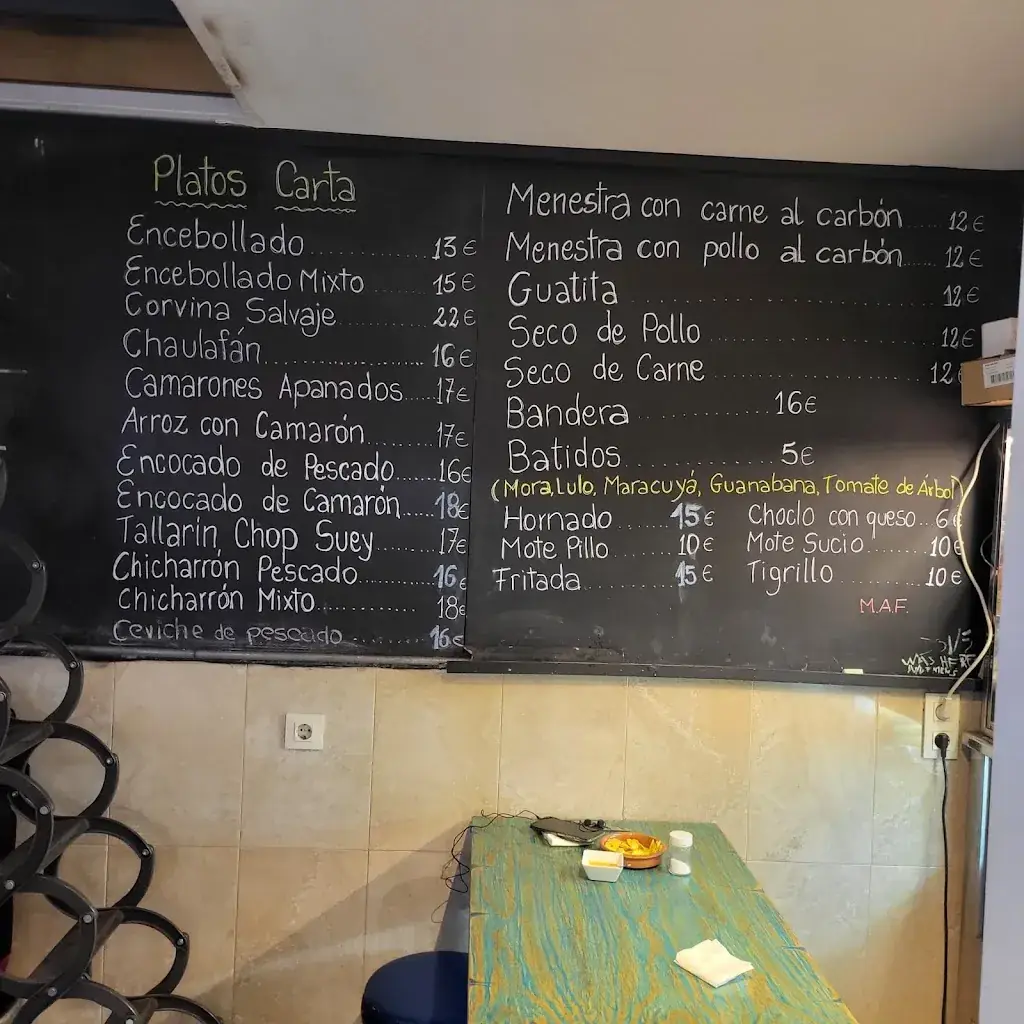 Platos Carta
Encebollado.................. 13€
Encebollado Mixto.......... 15€
Corvina Salvaje............ 22€
Chaulafán..................... 16€
Camarones Apanados.....17€
Arroz con Camarón......... 17€
Encocado de Pescado......16€
Encocado de Camarón.....18€
Tallarin Chop Suey......... 17€
Chicharrón Pescado.........16€
Chicharrón Mixto............ 18€
Ceviche de pescado......... 16€
Menestra con carne al carbón..... 12€
Menestra con pollo al carbón..... 12€
Guatita.............................. 12€
Seco de Pollo..................... 12€
Seco de Carne..................... 12€
Bandera............16€
Batidos............ 5€
(Mora, Lulo, Maracuyá, Guanabana, Tomate de Árbol)
Hornado........15€ Choclo con queso..6€
Mote Pillo.......10€ Mote Sucio........10€
Fritada..........15€ Tigrillo............10€
M.A.F.